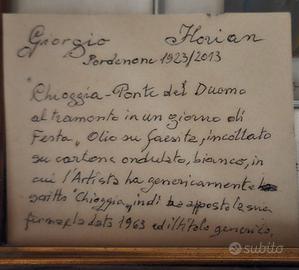 Giorgio Florian
Pordenone 1923/2013
"Chioggia - Ponte del Duomo
al tramonto in un giorno di
Festa", Olio su faesite, incollato
su cartone ondulato, bianco, in
cui l'Artista ha genericamente
scritto "Chioggia", indi ha apposto la sua
firma, la data 1963 ed il titolo generico,
subito